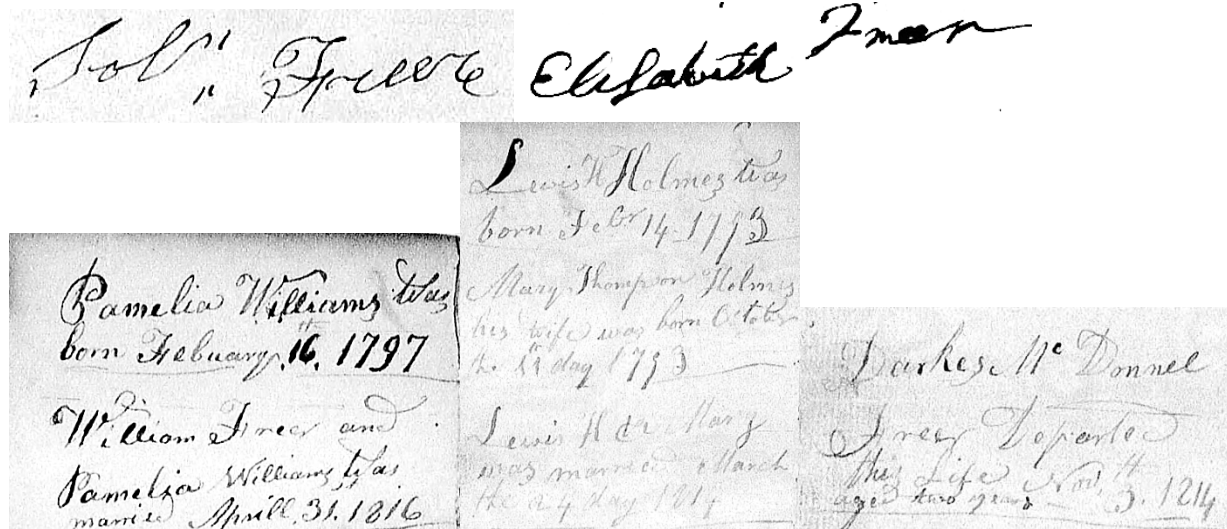 Sol,, Freere
Elisabeth Freer
Pamelia Williams Was
born Febuary 16th 1797
William Freer and
Pamelia Williams Was
married Aprill 31. 1816
Lewis H Holmes Was
born Febr 14 1793
Mary Thompson Holmes
his wife was born October
the day 1793
Lewis H & Mary
was married March
the 24 day 1814
Darkes Mc Donnel
Freer Departed
this Life Novth 3. 1214
aged two years